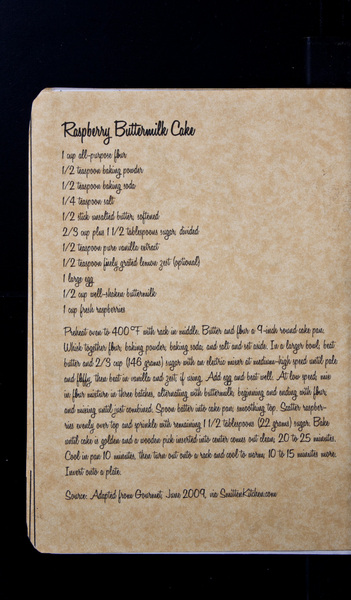 Raspberry Buttermilk Cake
1 cup all-purpose flour
1/2 teaspoon baking powder
1/2 teaspoon baking soda
1/4 teaspoon salt
1/2 stick unsalted butter, softened
2/3 cup plus 1 1/2 tablespoons sugar, divided
1/2 teaspoon pure vanilla extract
1/2 teaspoon finely grated lemon zest (optional)
1 large egg
1/2 cup well-shaken buttermilk
1 cup fresh raspberries
Preheat oven to 400°F with rack in middle. Butter and flour a 9-inch round cake pan.
Whisk together flour, baking powder, baking soda, and salt and set aside. In a larger bowl, beat
butter and 2/3 cup (146 grams) sugar with an electric mixer at medium-high speed until pale
and fluffy, then beat in vanilla and zest, if using. Add egg and beat well. At low speed, mix
in flour mixture in three batches, alternating with buttermilk, beginning and ending with flour,
and mixing until just combined. Spoon batter into cake pan, smoothing top. Scatter raspber-
ries evenly over top and sprinkle with remaining 1 1/2 tablespoons (22 grams) sugar. Bake
until cake is golden and a wooden pick inserted into center comes out clean, 20 to 25 minutes.
Cool in pan 10 minutes, then turn out onto a rack and cool to warm, 10 to 15 minutes more.
Invert onto a plate.
Source: Adapted from Gourmet, June 2009, via SmittenKitchen.com